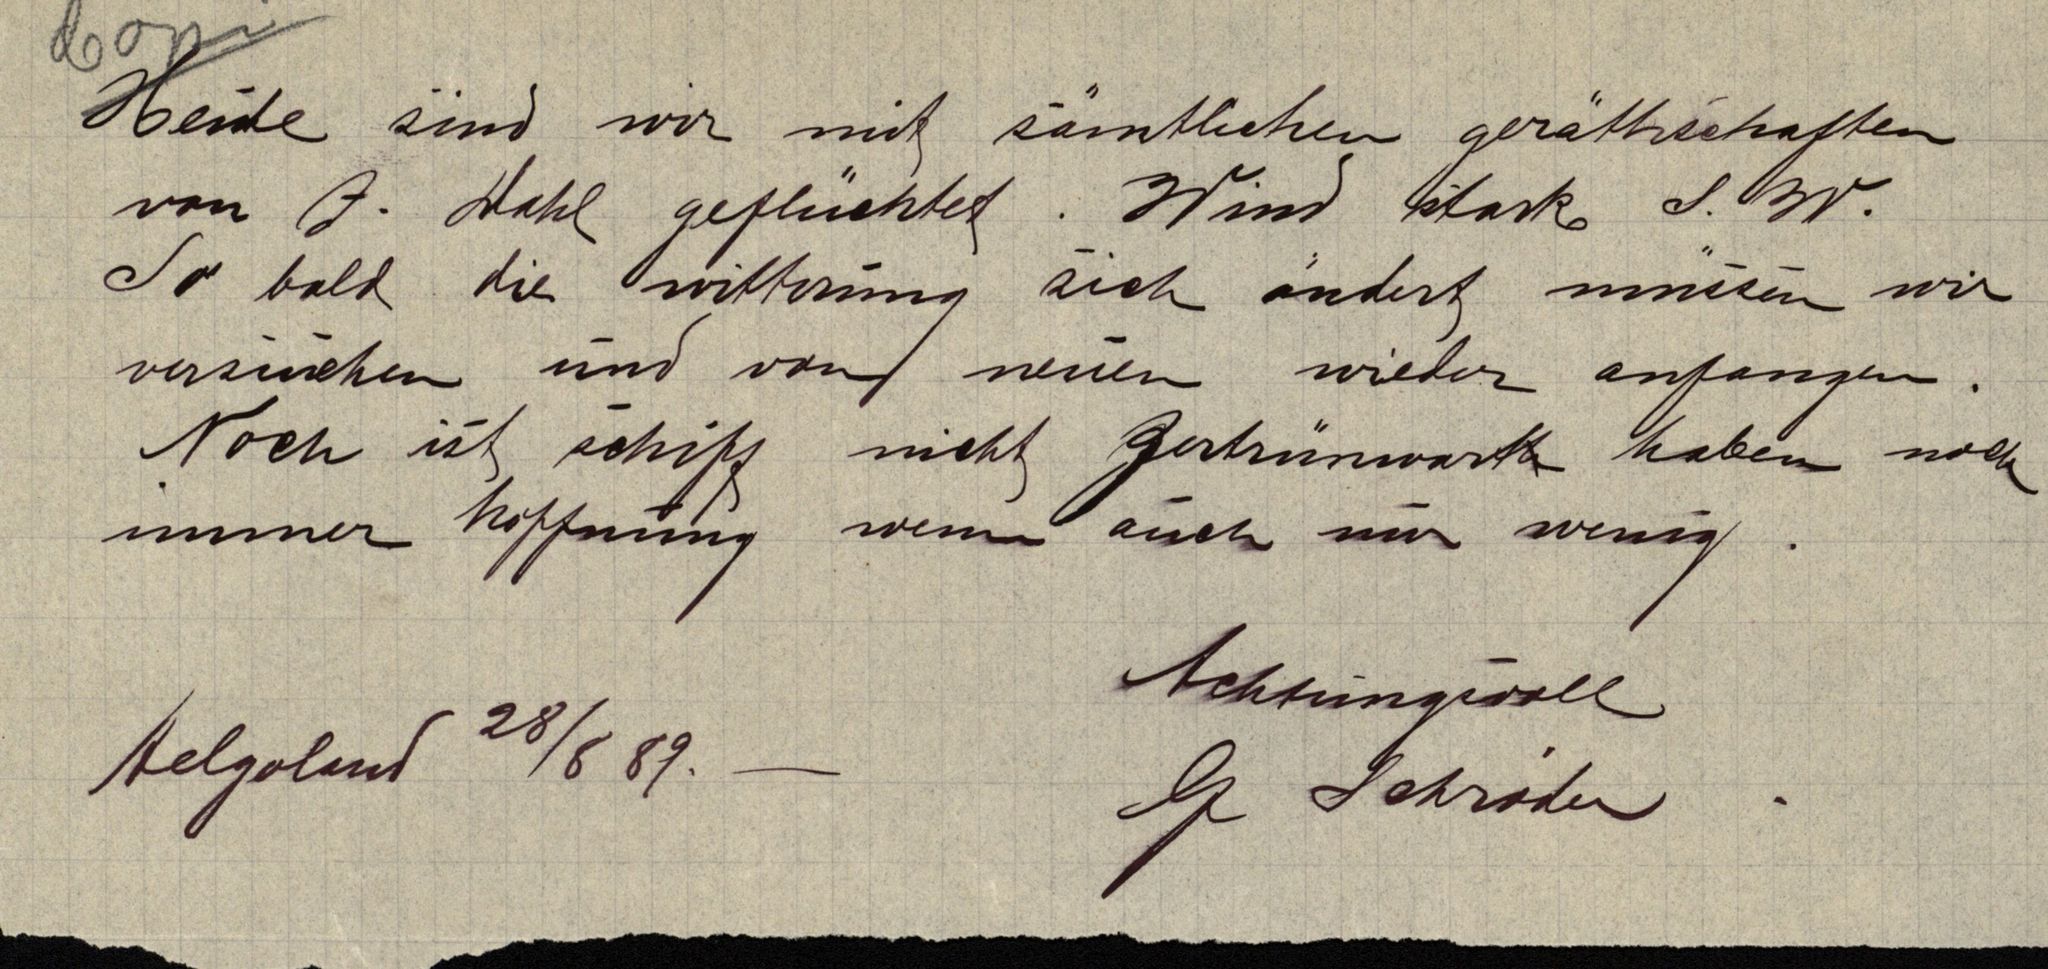 Copi
Heüte sind wir mit sämtlichen geräthschaften
von J. Dahl geflüchtet. Wind stark S. W.
So bald die witterüng sich ändert müssen wir
versüchen ünd von neüen wieder anfangen.
Noch ist schiff nicht haben noch
immer hoffnüng wenn aüch nür wenig.
Achtüngsvoll
Helgoland 28/8 89. —
G Schröder.